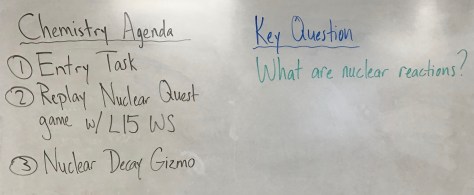 Chemistry Agenda
① Entry Task
② Replay Nuclear Quest
game w/ L15 WS
③ Nuclear Decay Gizmo
Key Question
What are nuclear reactions?